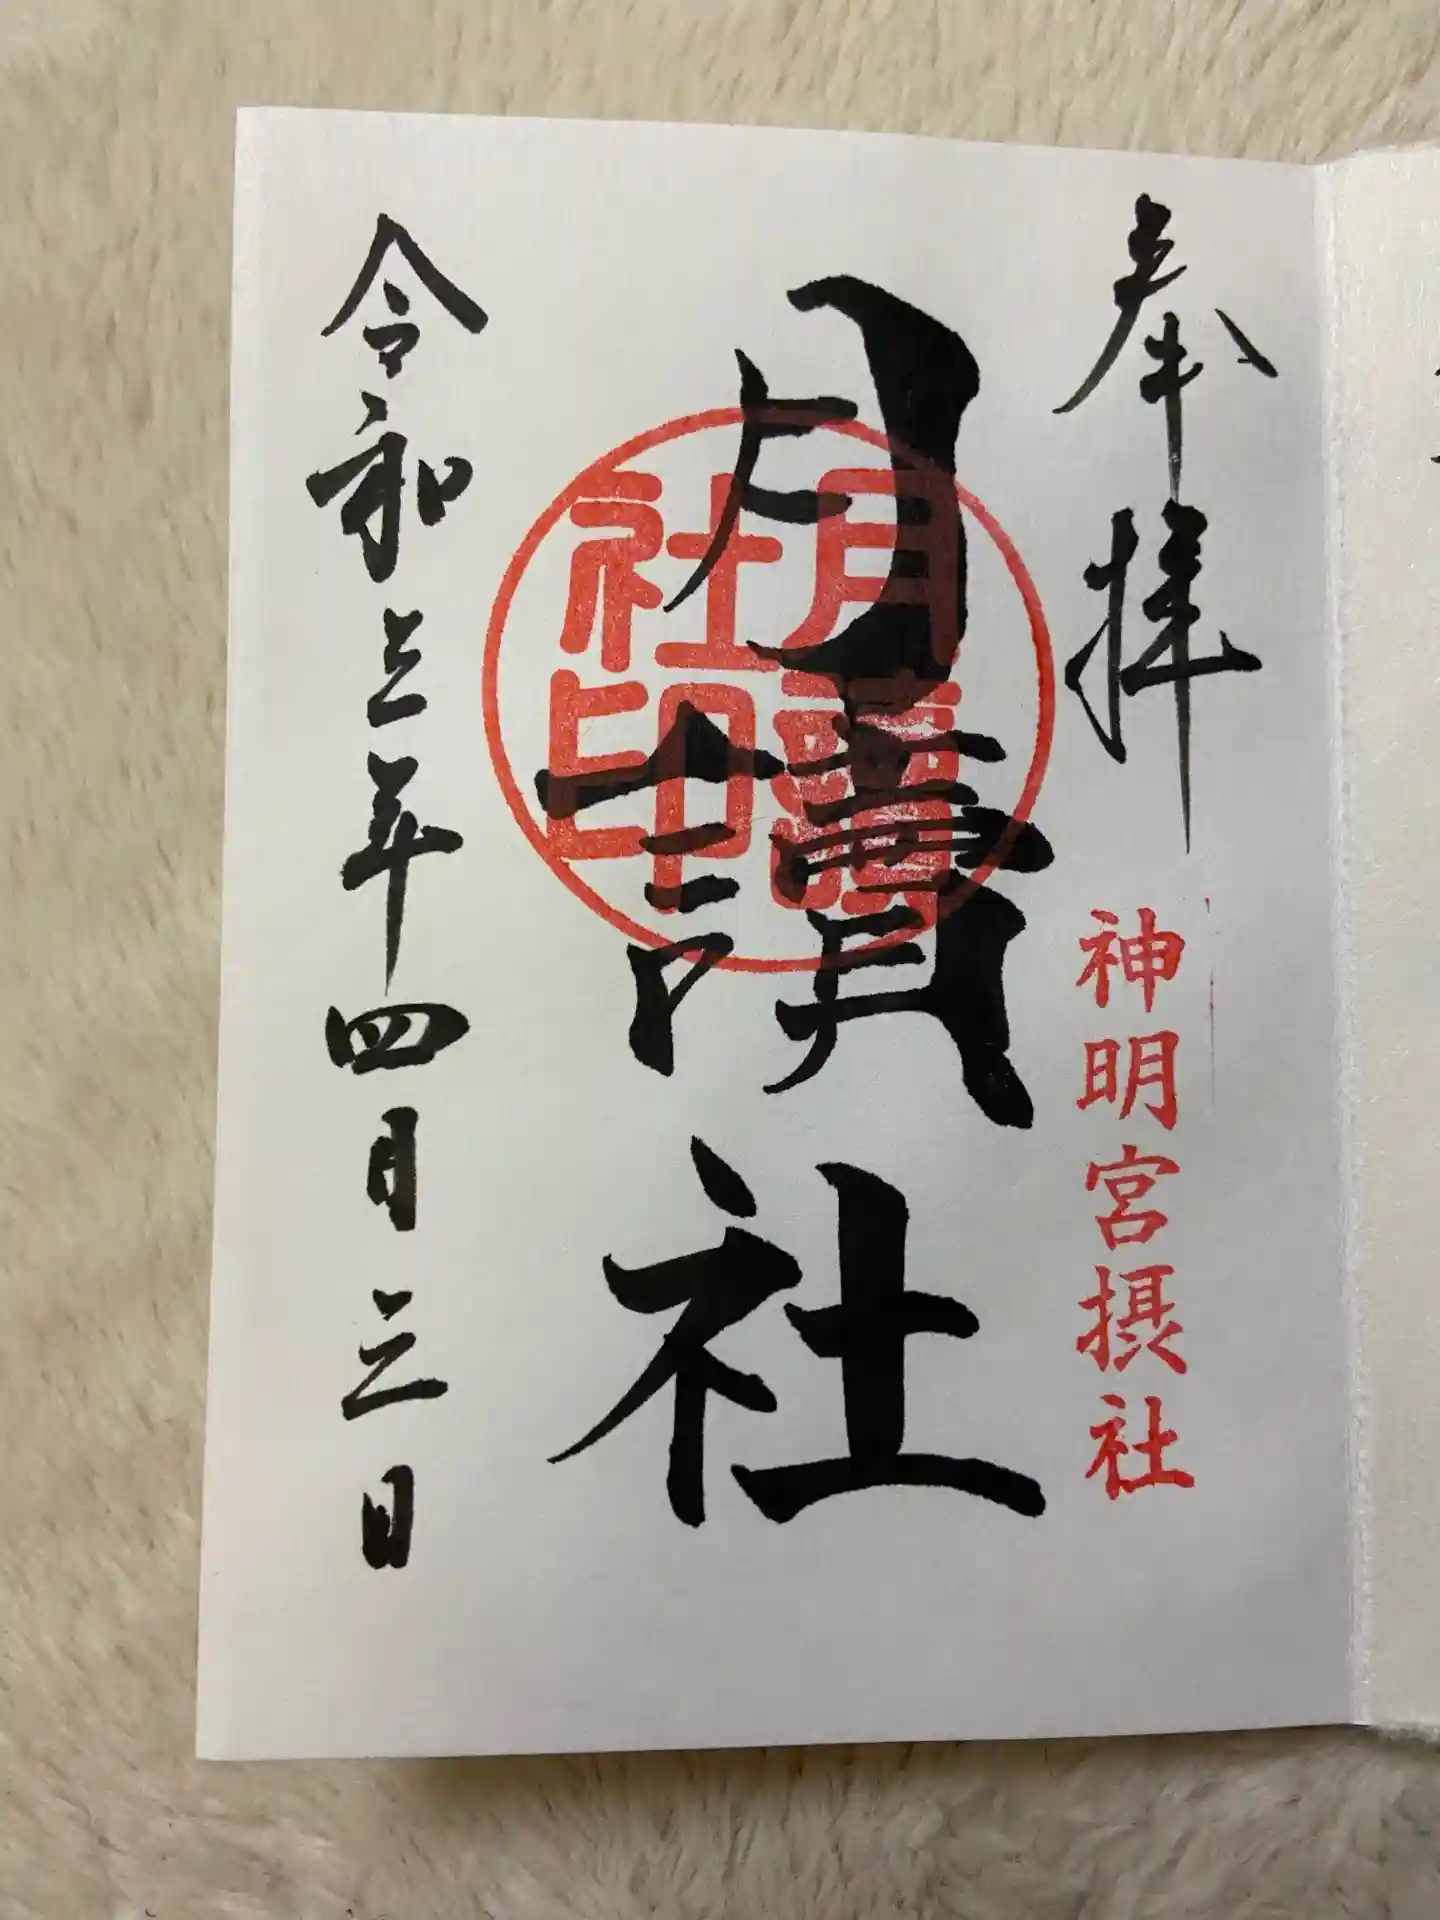 奉拝
神明宮摂社
月讀社
月讀社印
令和三年四月三日